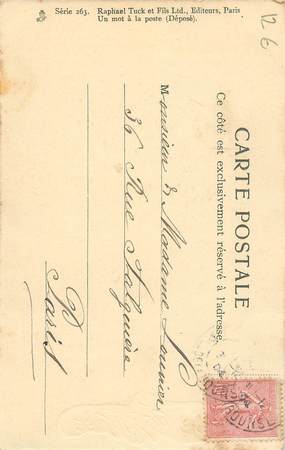 Série 263. Raphael Tuck et Fils Ltd., Editeurs, Paris
Un mot à la poste (Déposé).
12 €
CARTE POSTALE
Ce côté est exclusivement réservé à l'adresse.
Monsieur & Madame
36 Rue Falguière
Paris
BOURSE